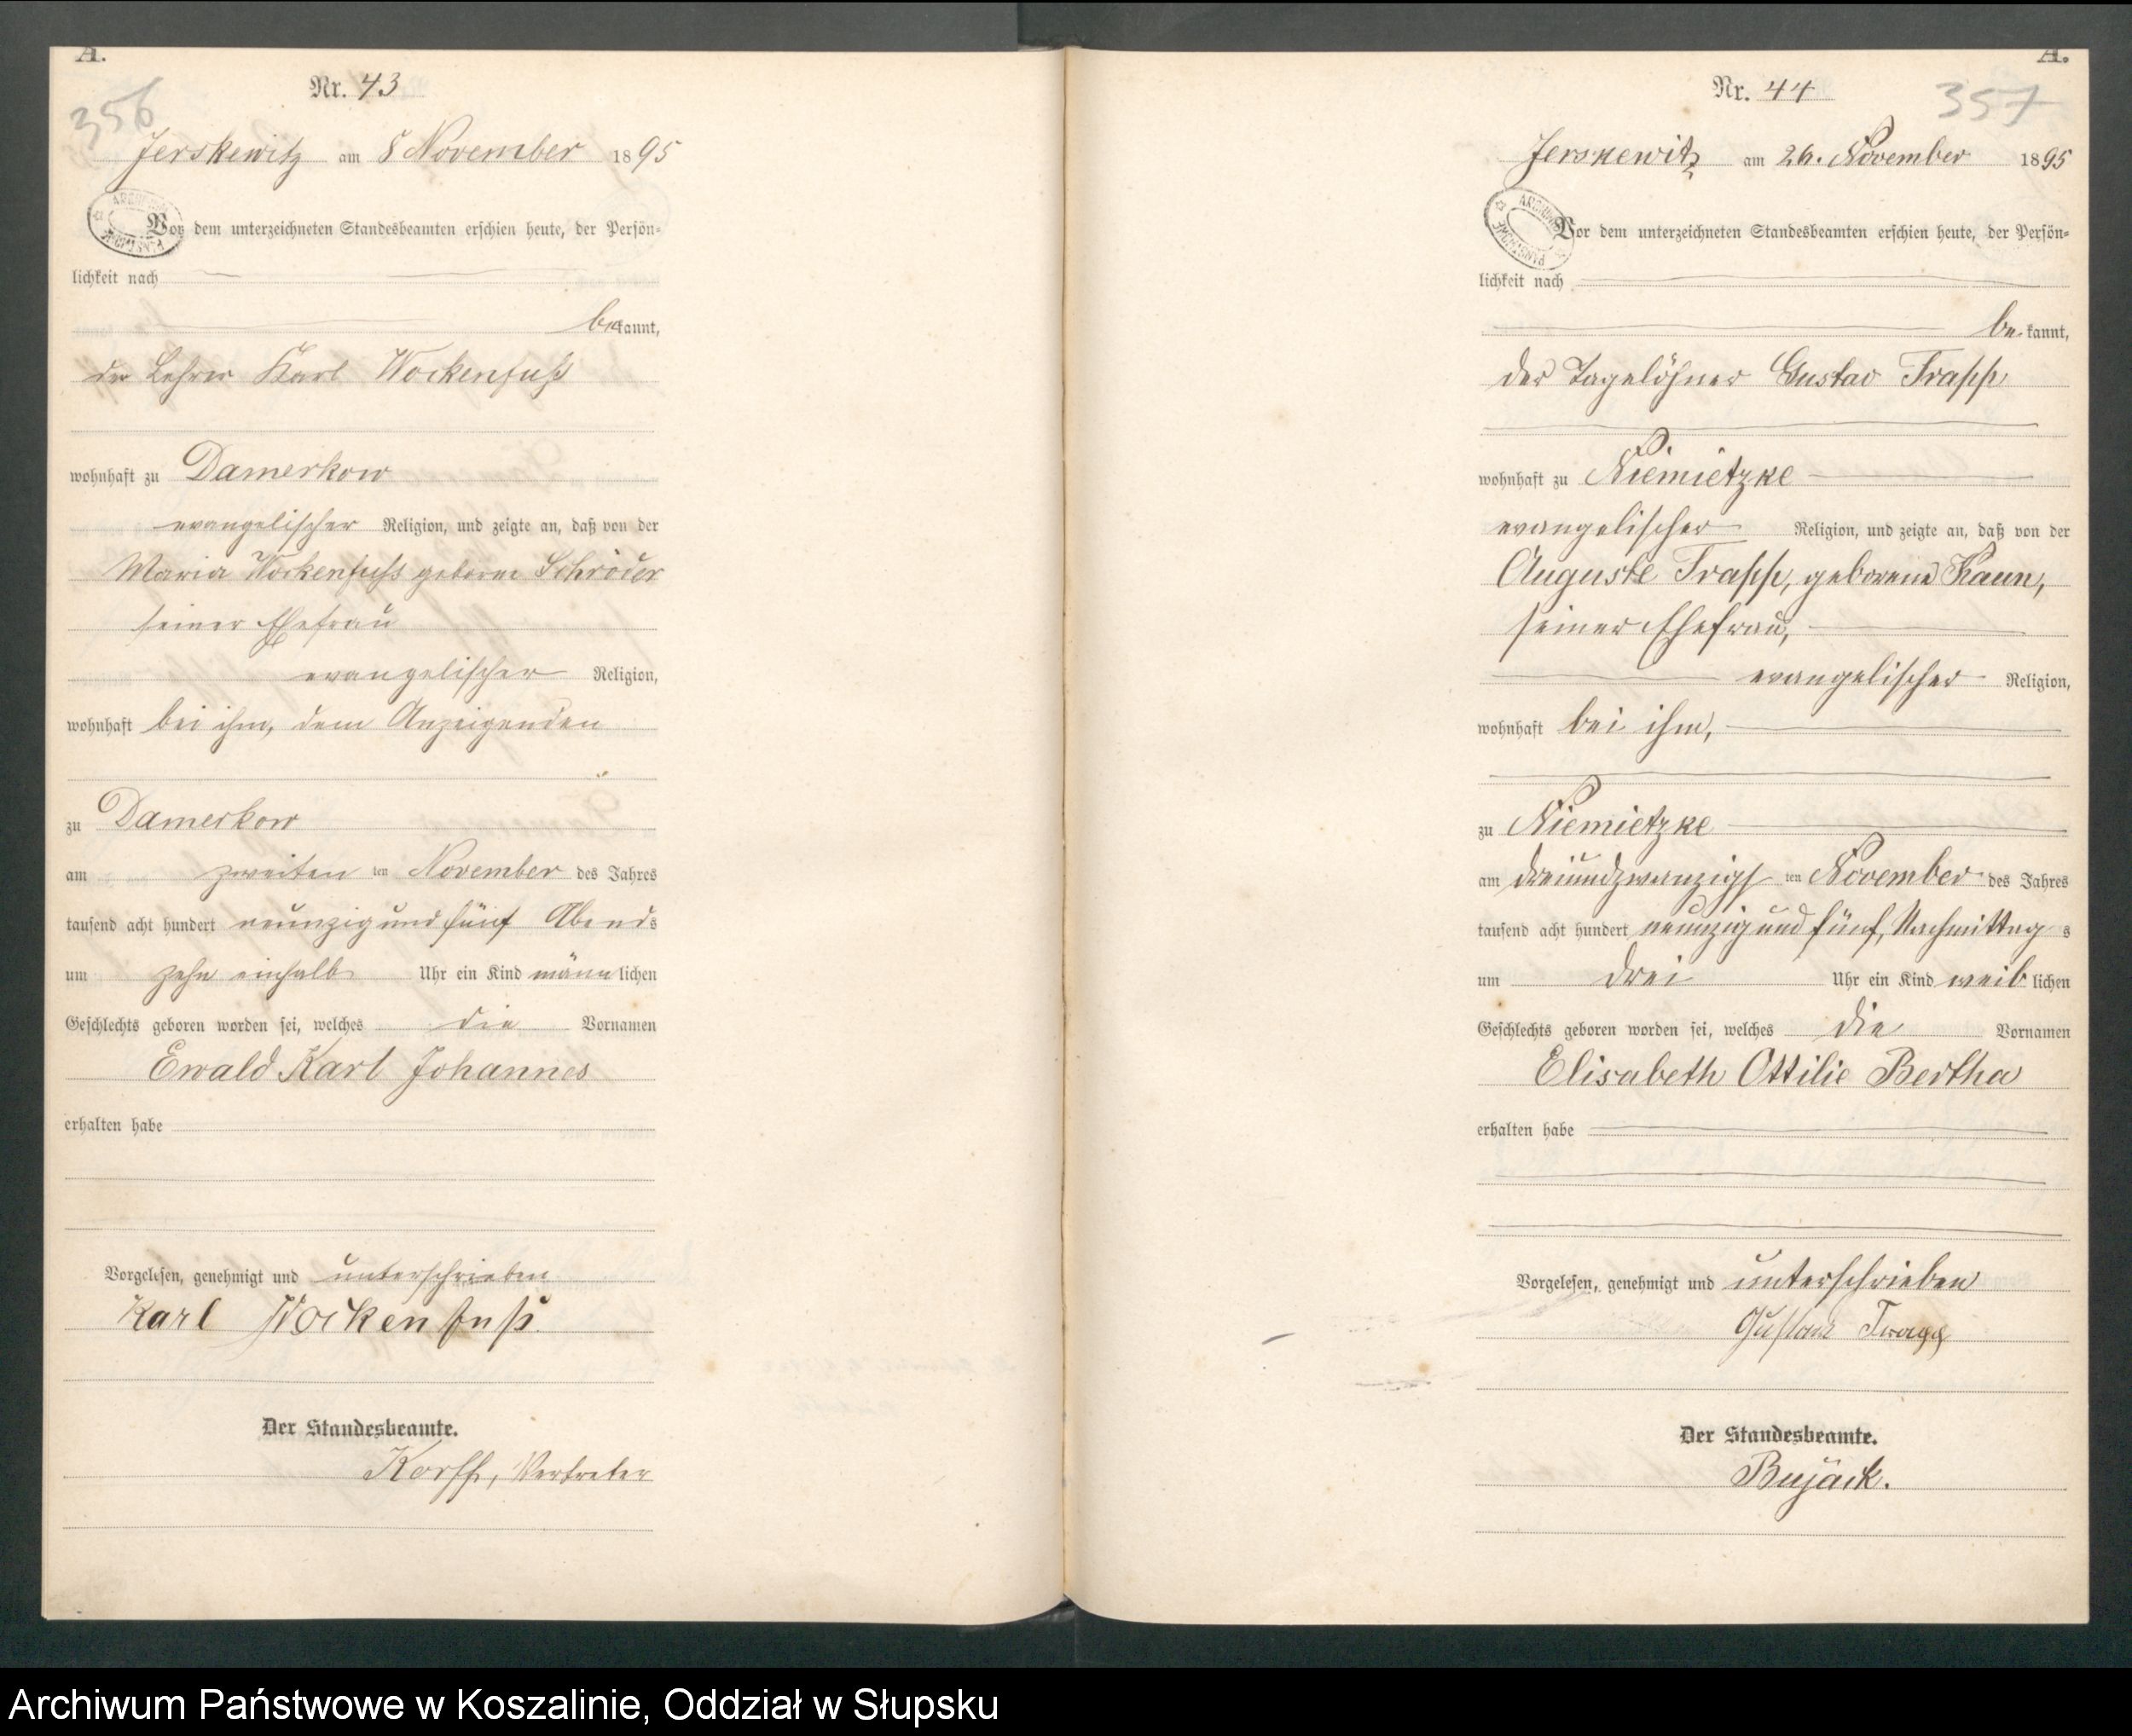 A.
Nr. 43
356
Jerskewitz am 8 November 1895
Vor dem unterzeichneten Standesbeamten erschien heute, der Persön-
lichkeit nach
bekannt,
der Lehrer Karl Wockenfuß
wohnhaft zu Damerkow
evangelischer Religion, und zeigte an, daß von der
Maria Wockenfuß geborne Schröder
seiner Ehefrau
evangelischer Religion,
wohnhaft bei ihm, dem Anzeigenden
zu Damerkow
am zweiten ten November des Jahres
tausend acht hundert neunzig und fünf Abends
um zehn einhalb Uhr ein Kind männlichen
Geschlechts geboren worden sei, welches die Vornamen
Ewald Karl Johannes
erhalten habe
Vorgelesen, genehmigt und unterschrieben
Karl Wockenfuß.
Der Standesbeamte.
Korff, Vertreter
A.
Nr. 44
357
Jerskewitz am 26. November 1895
Vor dem unterzeichneten Standesbeamten erschien heute, der Persön-
lichkeit nach
bekannt,
der Tagelöhner Gustav Trapp
wohnhaft zu Niemietzke
evangelischer Religion, und zeigte an, daß von der
Auguste Trapp, geborene Kaun,
seiner Ehefrau,
evangelischer Religion,
wohnhaft bei ihm,
zu Niemietzke
am dreiundzwanzigsten November des Jahres
tausend acht hundert neunzig und fünf, Nachmittags
um drei Uhr ein Kind weiblichen
Geschlechts geboren worden sei, welches die Vornamen
Elisabeth Ottilie Bertha
erhalten habe
Vorgelesen, genehmigt und unterschrieben
Gustav Trapp
Der Standesbeamte.
Bujack.
Archiwum Państwowe w Koszalinie, Oddział w Słupsku